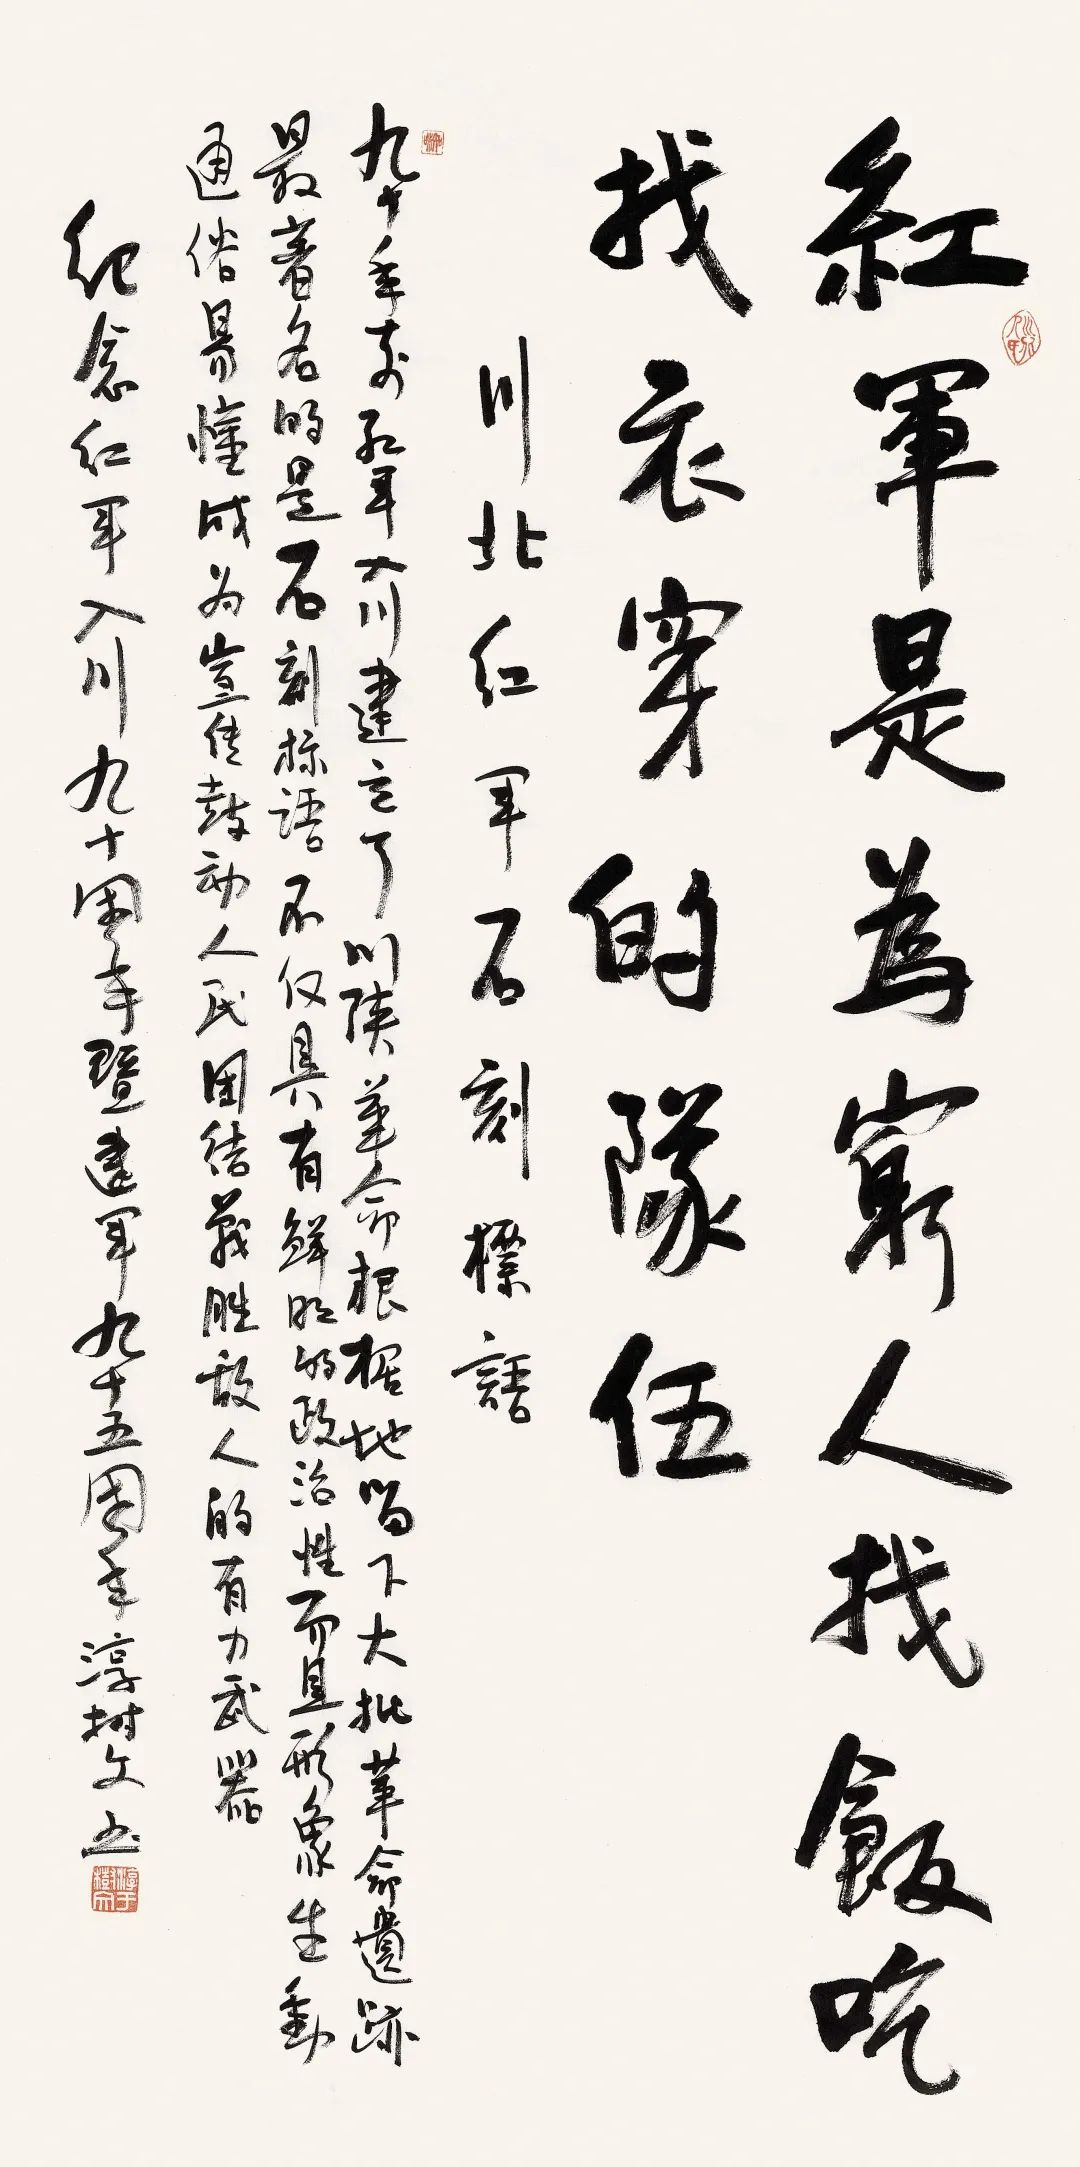 紅軍是為窮人找飯吃
找衣穿的隊伍
川北红军石刻標語
九十年前红军入川建立了川陕革命根据地留下大批革命遺跡
最著名的是石刻标语不仅具有鲜明的政治性而且形象生動
通俗易懂成为宣传鼓动人民团结战胜敌人的有力武器
纪念红军入川九十周年暨建军九十五周年淳树文书